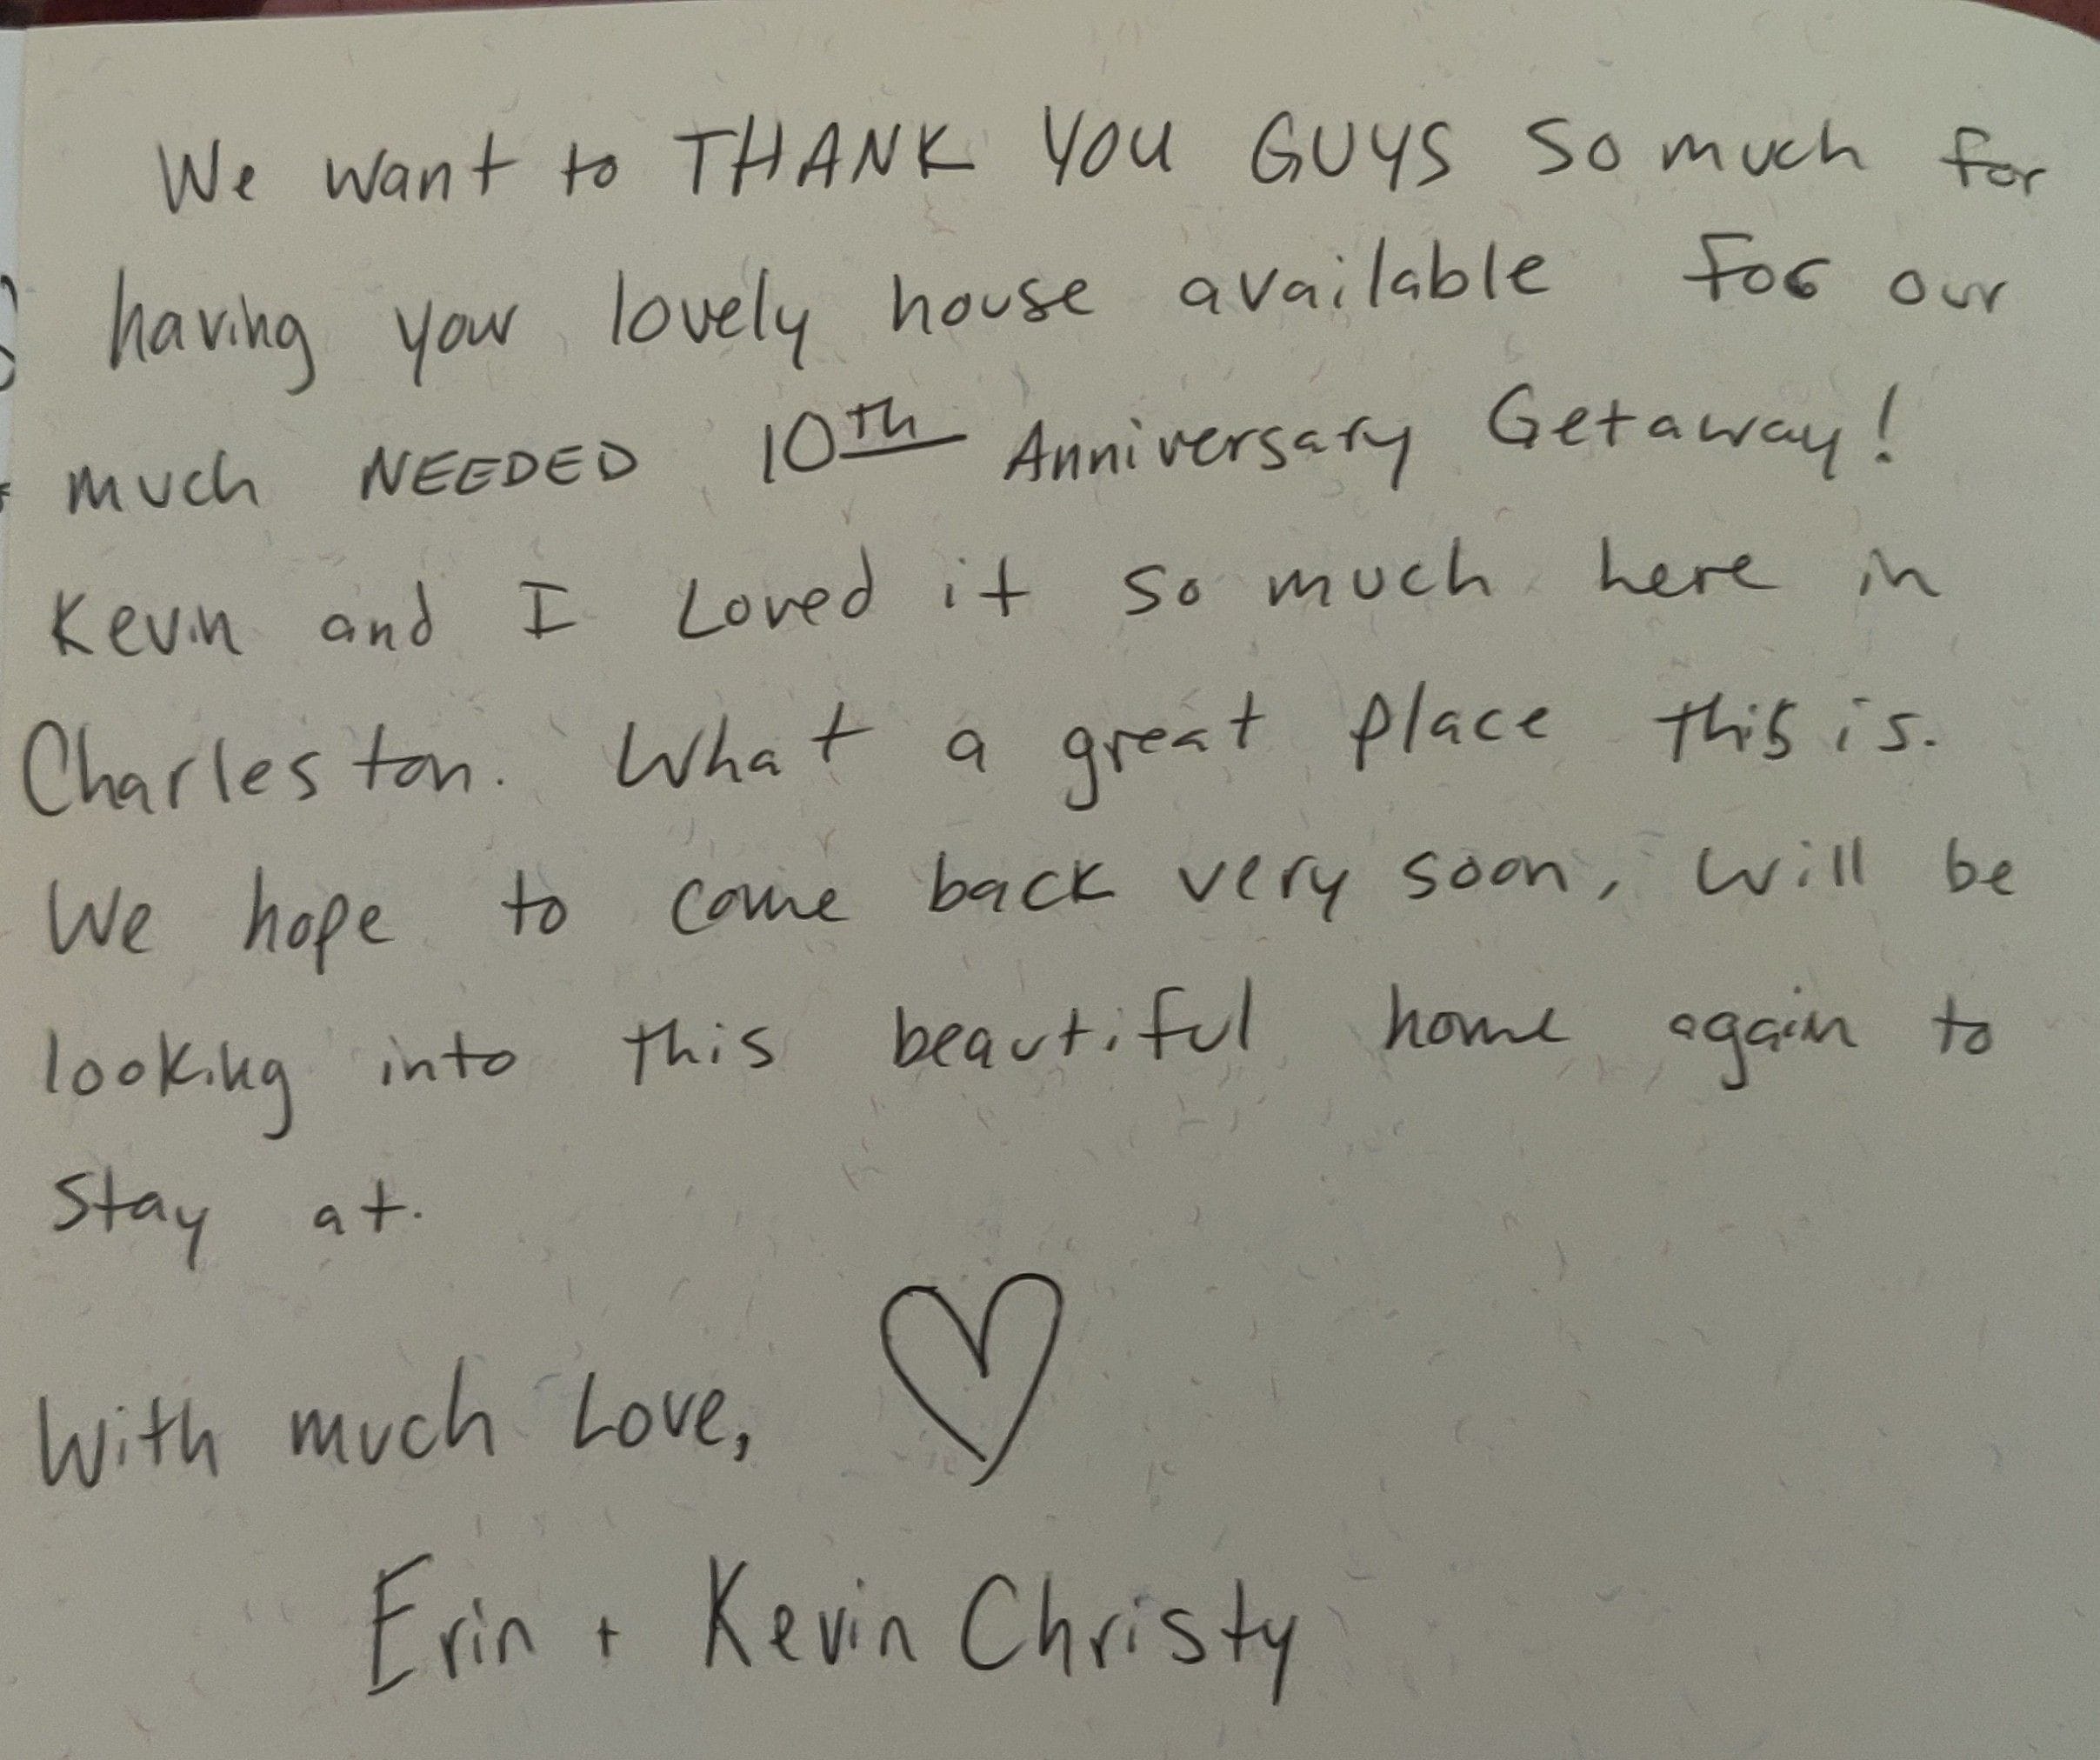 We want to THANK YOU GUYS so much for
having your lovely house available for our
much NEEDED 10th Anniversary Getaway!
Kevin and I Loved it so much here in
Charleston. What a great place this is.
We hope to come back very soon, will be
looking into this beautiful home again to
stay at.
With much Love,
Erin + Kevin Christy